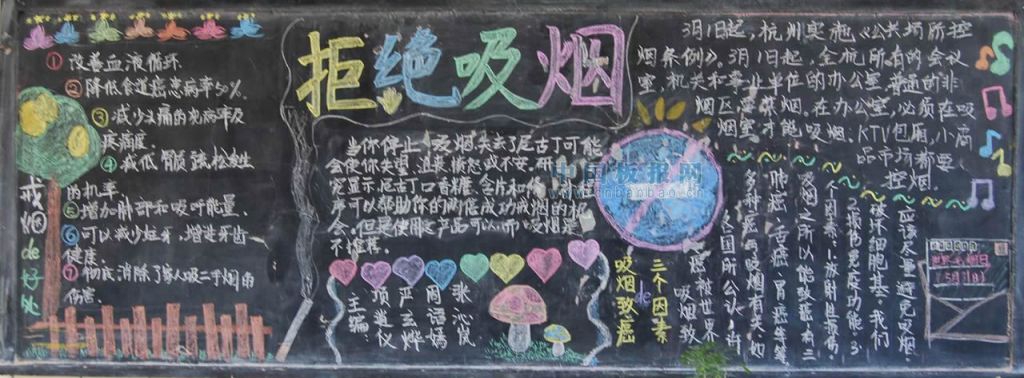 拒绝吸烟
戒烟de好处
①改善血液循环
②降低食道癌患病率50%.
③减少头痛的免病率及
疾痛度.
④减低骨骼强松发生
的机率.
⑤增加肺部和吸吁能量.
⑥可以减少蛀牙,增进牙齿
健康.
⑦彻底消除了家人吸二手烟的
伤害.
当你停止吸烟失去了尼古丁可能
会使你失望、沮丧、愤怒或不安.研
究显示尼古丁口香糖、含片和
声可以帮助你的两倍成功戒烟的机
会.但是使用
不推荐.
主编:
项道仪
严云烨
周语嫣
张沁岚
3月1日起,杭州实施《公共场所控
烟条例》。3月1日起,全杭所有的会议
室,机关和事业单位的办公室,普通的非
烟区要禁烟.在办公室,必须在吸
烟室才能吸烟.KTV包厢,小商
品市场都要
控烟.
中国板报网
www.banbaobao.cn
三个因素
de
吸烟致癌
吸烟致
癌被世界
各国所公认,
多种癌与吸烟有关,如
肺癌、舌癌、胃癌等等
吸烟之所以能致癌有三
个因素:1.放射性毒
2.损伤免疫功能.3
破坏细胞基.我们
应该尽量避免吸烟.
世界无烟日
5月31日